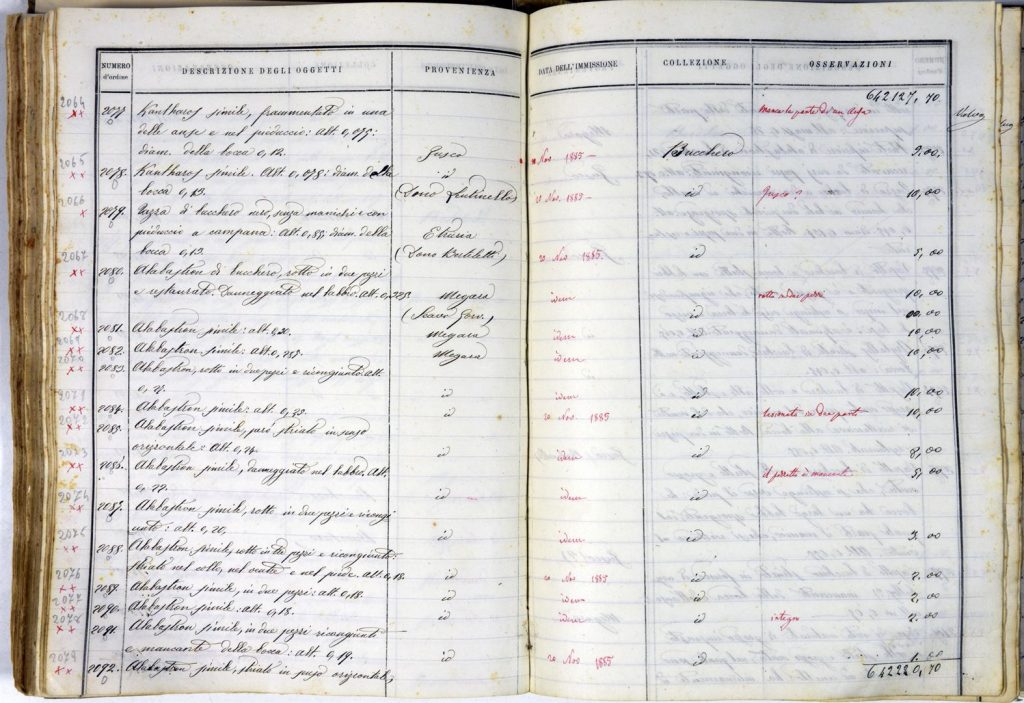 NUMERO d'ordine DESCRIZIONE DEGLI OGGETTI PROVENIENZA DATA DELL'IMMISSIONE COLLEZIONE OSSERVAZIONI
642127, 70
2064 xx 2077 Kantharos simile, frammentato in una manca la parte di un'ansa
delle anse e nel pieduccio: alt. 0,075:
diam. della bocca 0,12. Fusco Nov 1885 Bucchero
2065 xx 2078. Kantharos simile. Alt. 0,078: diam. della id
bocca 0,13. (Dono Nov 1885 id Fusco? 10,00
2066 x 2079. di bucchero nero, senza manichi e con
pieduccio a campana: Alt. diam. della Etruria
bocca 0,13. (Dono 20 Nov 1885. id 5,00
2067 xx 2080. Alabastron di bucchero, rotto in due pezzi
e restaurato. Danneggiato nel labbro. Alt. Megara idem rotto in due pezzi 10,00
2068 (Scavo id 00,00
xx 2081. Alabastron simile: alt. 0,20. Megara idem id 10,00
2069 xx 2082. Alabastron simile: alt. Megara idem id 10,00
2070 xx 2083. Alabastron, rotto in due pezzi e ricongiunto. Alt.
id idem id 10,00
2071 xx 2084. Alabastron simile: alt. id 20 Nov. 1885 id 10,00
2072 xx 2085. Alabastron simile, però striato in senso
orizzontale: Alt. id idem id 8,00
2073 xx Alabastron simile, danneggiato nel labbro. Alt.
id
2074 xx 2087. Alabastron simile, rotto in due pezzi e ricongi
unto: alt. 0,20. id idem id 3,00
2075 xx 2088. Alabastron simile, rotto in tre pezzi e ricongiunto
striato nel collo, nel ventre e nel piede. Alt. 0,18. id 20 Nov 1885 id 2.00
2076 xx 2089. Alabastron simile, in due pezzi: alt. 0,18. id idem id 2,00
2077 xx 2090. Alabastron simile: alt. 0,18. id idem id integro 2.00
2078 xx 2091. Alabastron simile, in due pezzi ricongiunto
e mancante della bocca: alt. 0,19. id 20 Nov 1885 id
2079 xx 2092. Alabastron simile, striato in senso orizzontale, 642220,70